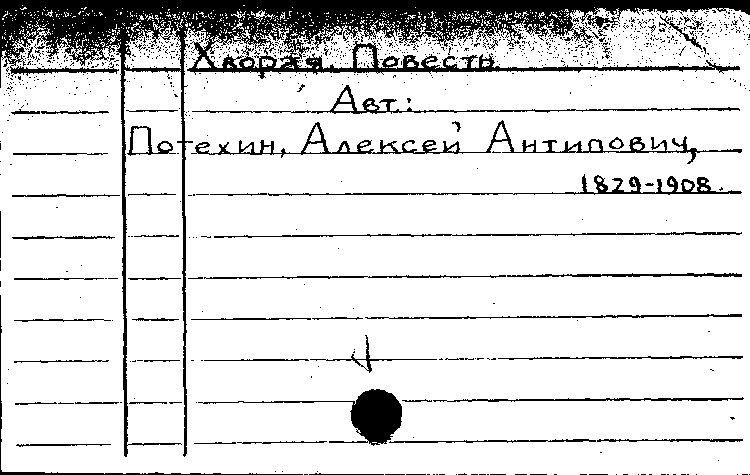 Хворая. Повесть.
Авт.:
Потехин, Алексей Антипович,
1829-1908.